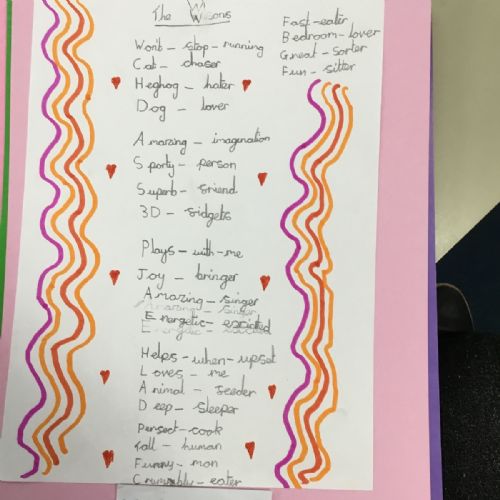 The Wilsons
Won't - stop - running
Cat - chaser
Heghog - hater
Dog - lover
Amazing - imagination
Sporty - person
Superb - friend
3D - fidgets
Plays - with - me
Joy - bringer
Amazing - singer
Energetic - excited
Helps - when - upset
Loves - me
Animal - feeder
Deep - sleeper
Perfect - cook
Tall - human
Funny - man
Crumbly - eater
Fast - eater
Bedroom - lover
Great - sorter
Fun - sitter